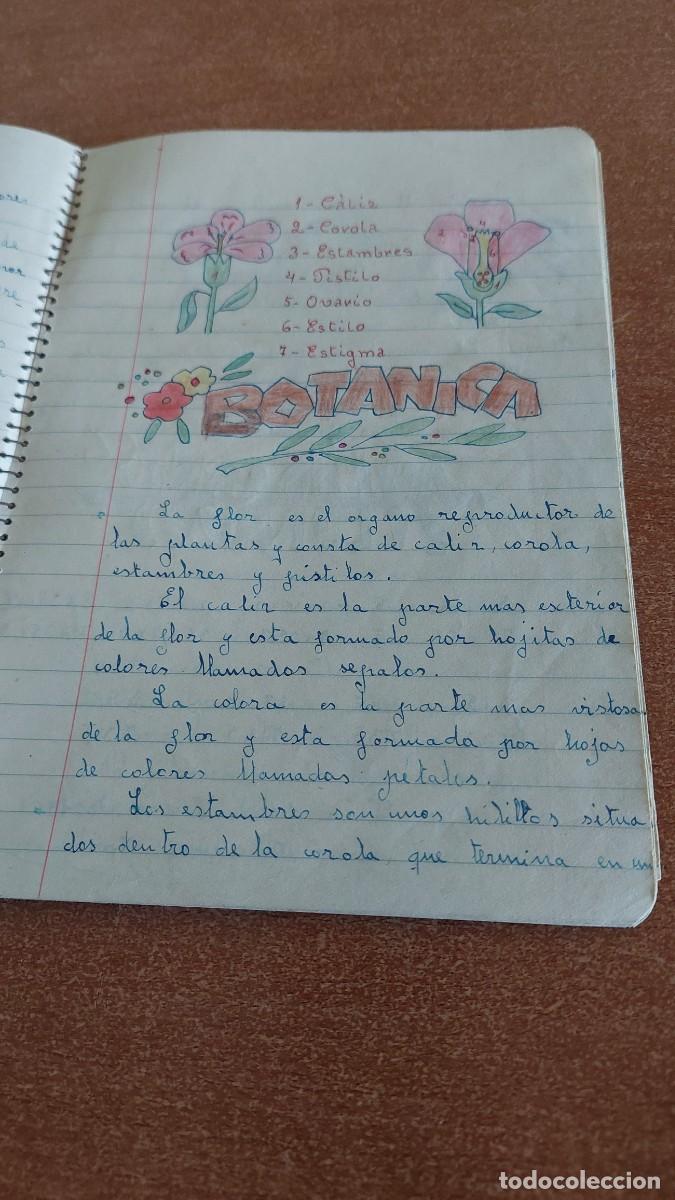 1 - Càliz
2 - Corola
3 - Estambres
4 - Pistilo
5 - Ovario
6 - Estilo
7 - Estigma
BOTANICA
La flor es el organo reproductor de
las plantas y consta de caliz, corola,
estambres y pistilos.
El caliz es la parte mas exterior
de la flor y esta formado por hojitas de
colores llamados sepalos.
La colora es la parte mas vistosa
de la flor y esta formada por hojas
de colores llamadas pétalos.
Los estambres son unos hilillos situa
dos dentro de la corola, que termina en un
todocoleccion